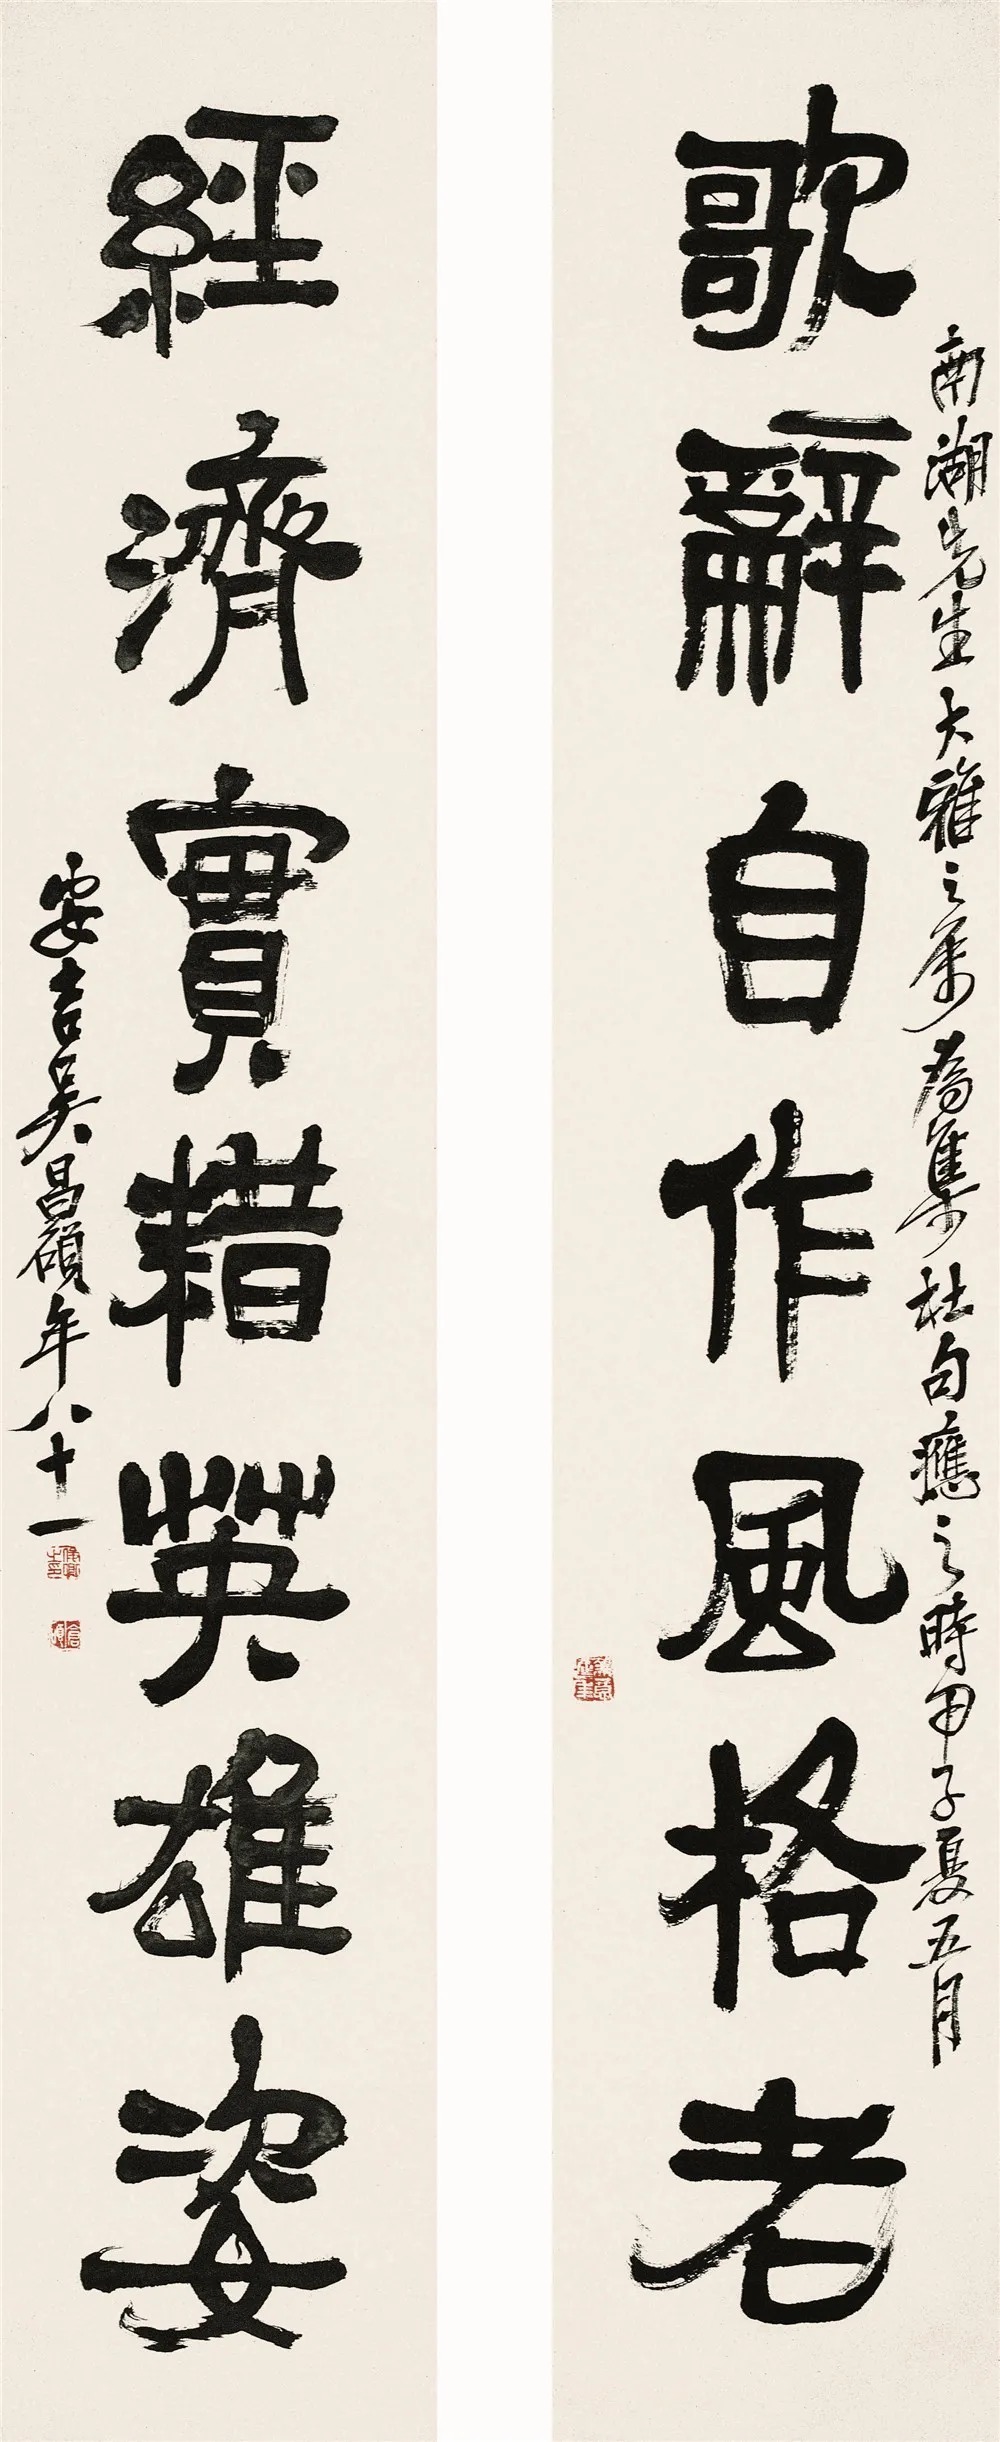 南湖先生大雅之属為集杜句應之時甲子夏五月
歌辭自作風格老
經濟實耤英雄姿
安吉吳昌碩年八十一
俊卿之印
倉碩